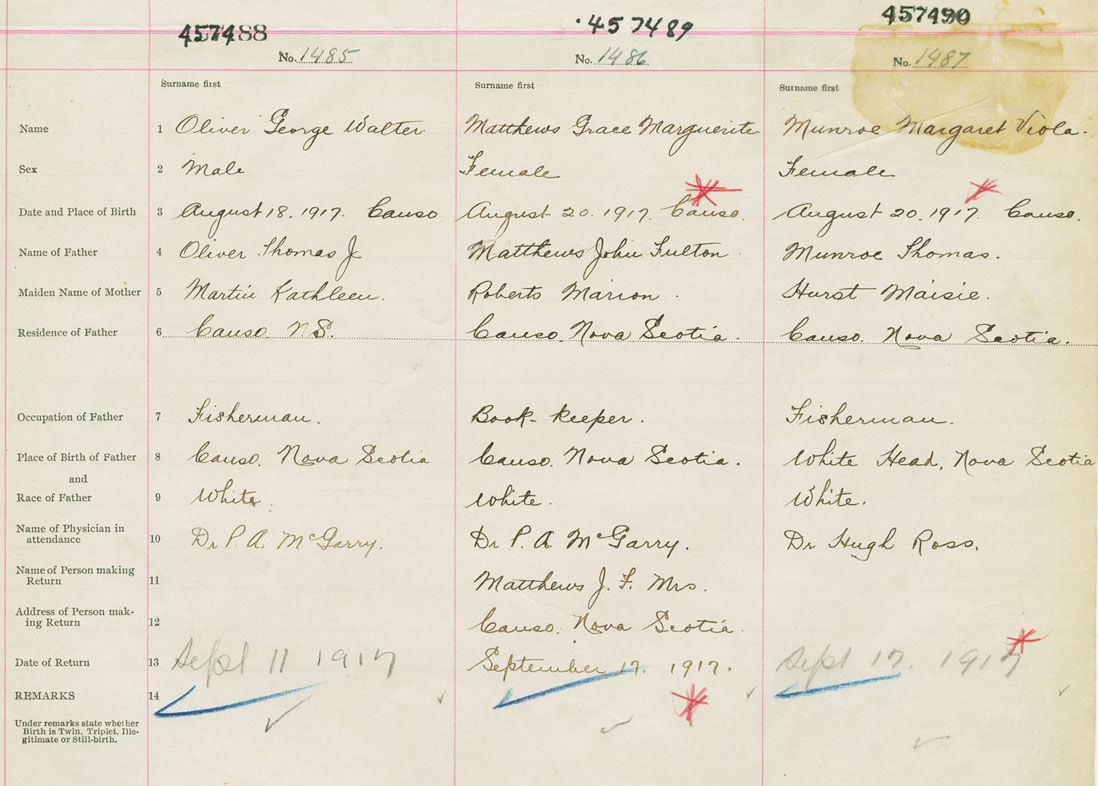 457488 457489 457490
No. 1485 No. 1486 No. 1487
Surname first Surname first Surname first
Name 1 Oliver George Walter Matthews Grace Marguerite Munroe Margaret Viola.
Sex 2 Male Female Female
Date and Place of Birth 3 August 18. 1917. Canso August 20. 1917. Canso. August 20. 1917. Canso.
Name of Father 4 Oliver Thomas J Matthews John Fulton Munroe Thomas.
Maiden Name of Mother 5 Martin Kathleen. Roberts Marion. Hurst Maisie.
Residence of Father 6 Canso. N.S. Canso. Nova Scotia. Canso. Nova Scotia.
Occupation of Father 7 Fisherman. Book-keeper. Fisherman.
Place of Birth of Father 8 Canso. Nova Scotia Canso. Nova Scotia. White Head, Nova Scotia
and
Race of Father 9 White. White. White.
Name of Physician in
attendance 10 Dr P. A. McGarry. Dr P. A McGarry. Dr Hugh Ross.
Name of Person making
Return 11 Matthews J. F. Mrs.
Address of Person mak-
ing Return 12 Canso. Nova Scotia.
Date of Return 13 Sept 11 1917 September 17. 1917. Sept 17. 1917
REMARKS 14
Under remarks state whether
Birth is Twin, Triplet, Ille-
gitimate or Still-birth.